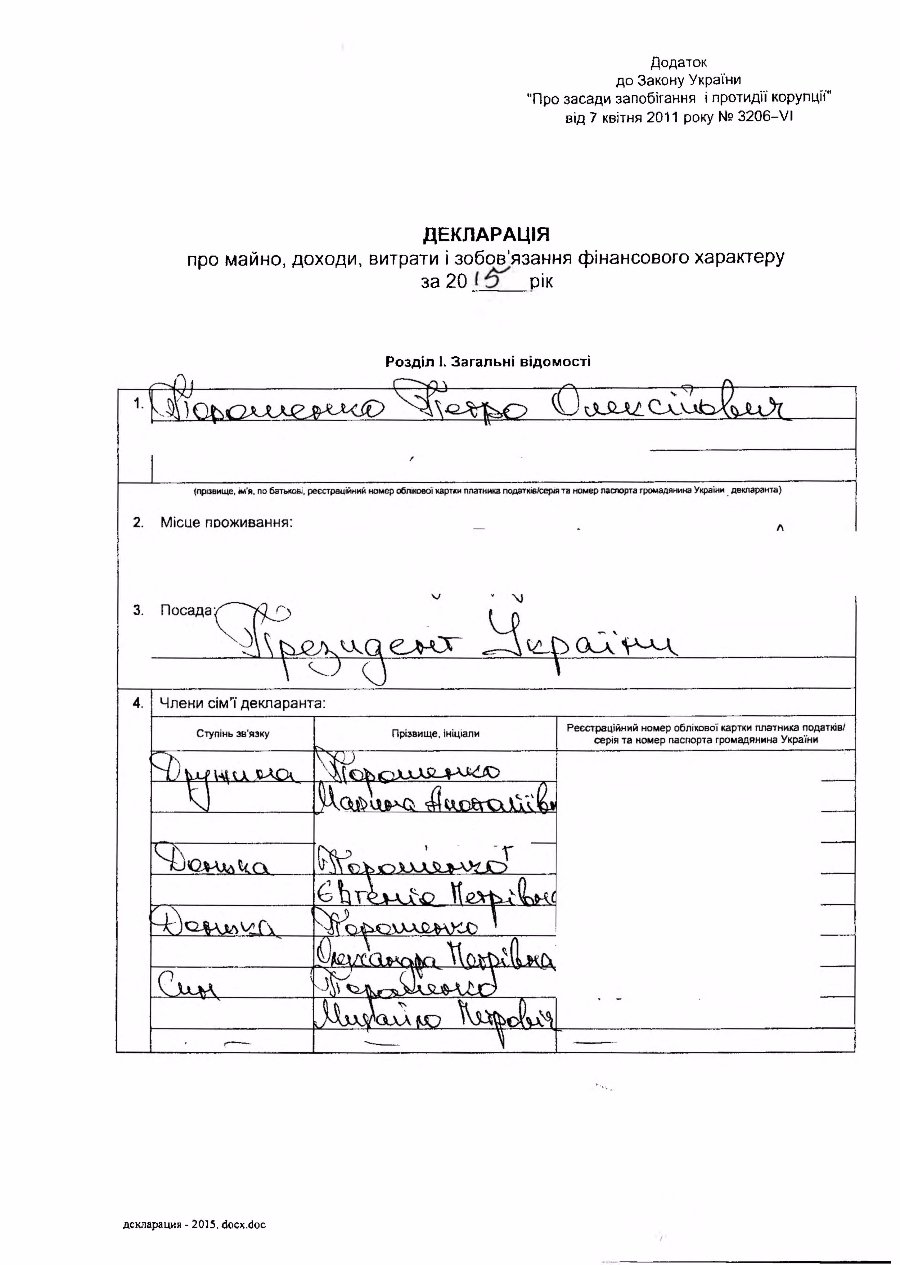 Додаток
до Закону України
"Про засади запобігання і протидії корупції"
від 7 квітня 2011 року № 3206–VI
ДЕКЛАРАЦІЯ
про майно, доходи, витрати і зобов'язання фінансового характеру
за 2015 рік
Розділ І. Загальні відомості
1. Порошенко Петро Олексійович
(прізвище, ім'я, по батькові, реєстраційний номер облікової картки платника податків/серія та номер паспорта громадянина України декларанта)
2. Місце проживання:
3. Посада: Президент України
4. Члени сім'ї декларанта:
Ступінь зв'язку Прізвище, ініціали Реєстраційний номер облікової картки платника податків/
серія та номер паспорта громадянина України
Дружина Порошенко
Марина Анатоліївн
Донька Порошенко
Євгенія Петрівна
Донька Порошенко
Олександра Петрівна
Син Порошенко
Михайло Петрович
декларация - 2015. docx.doc